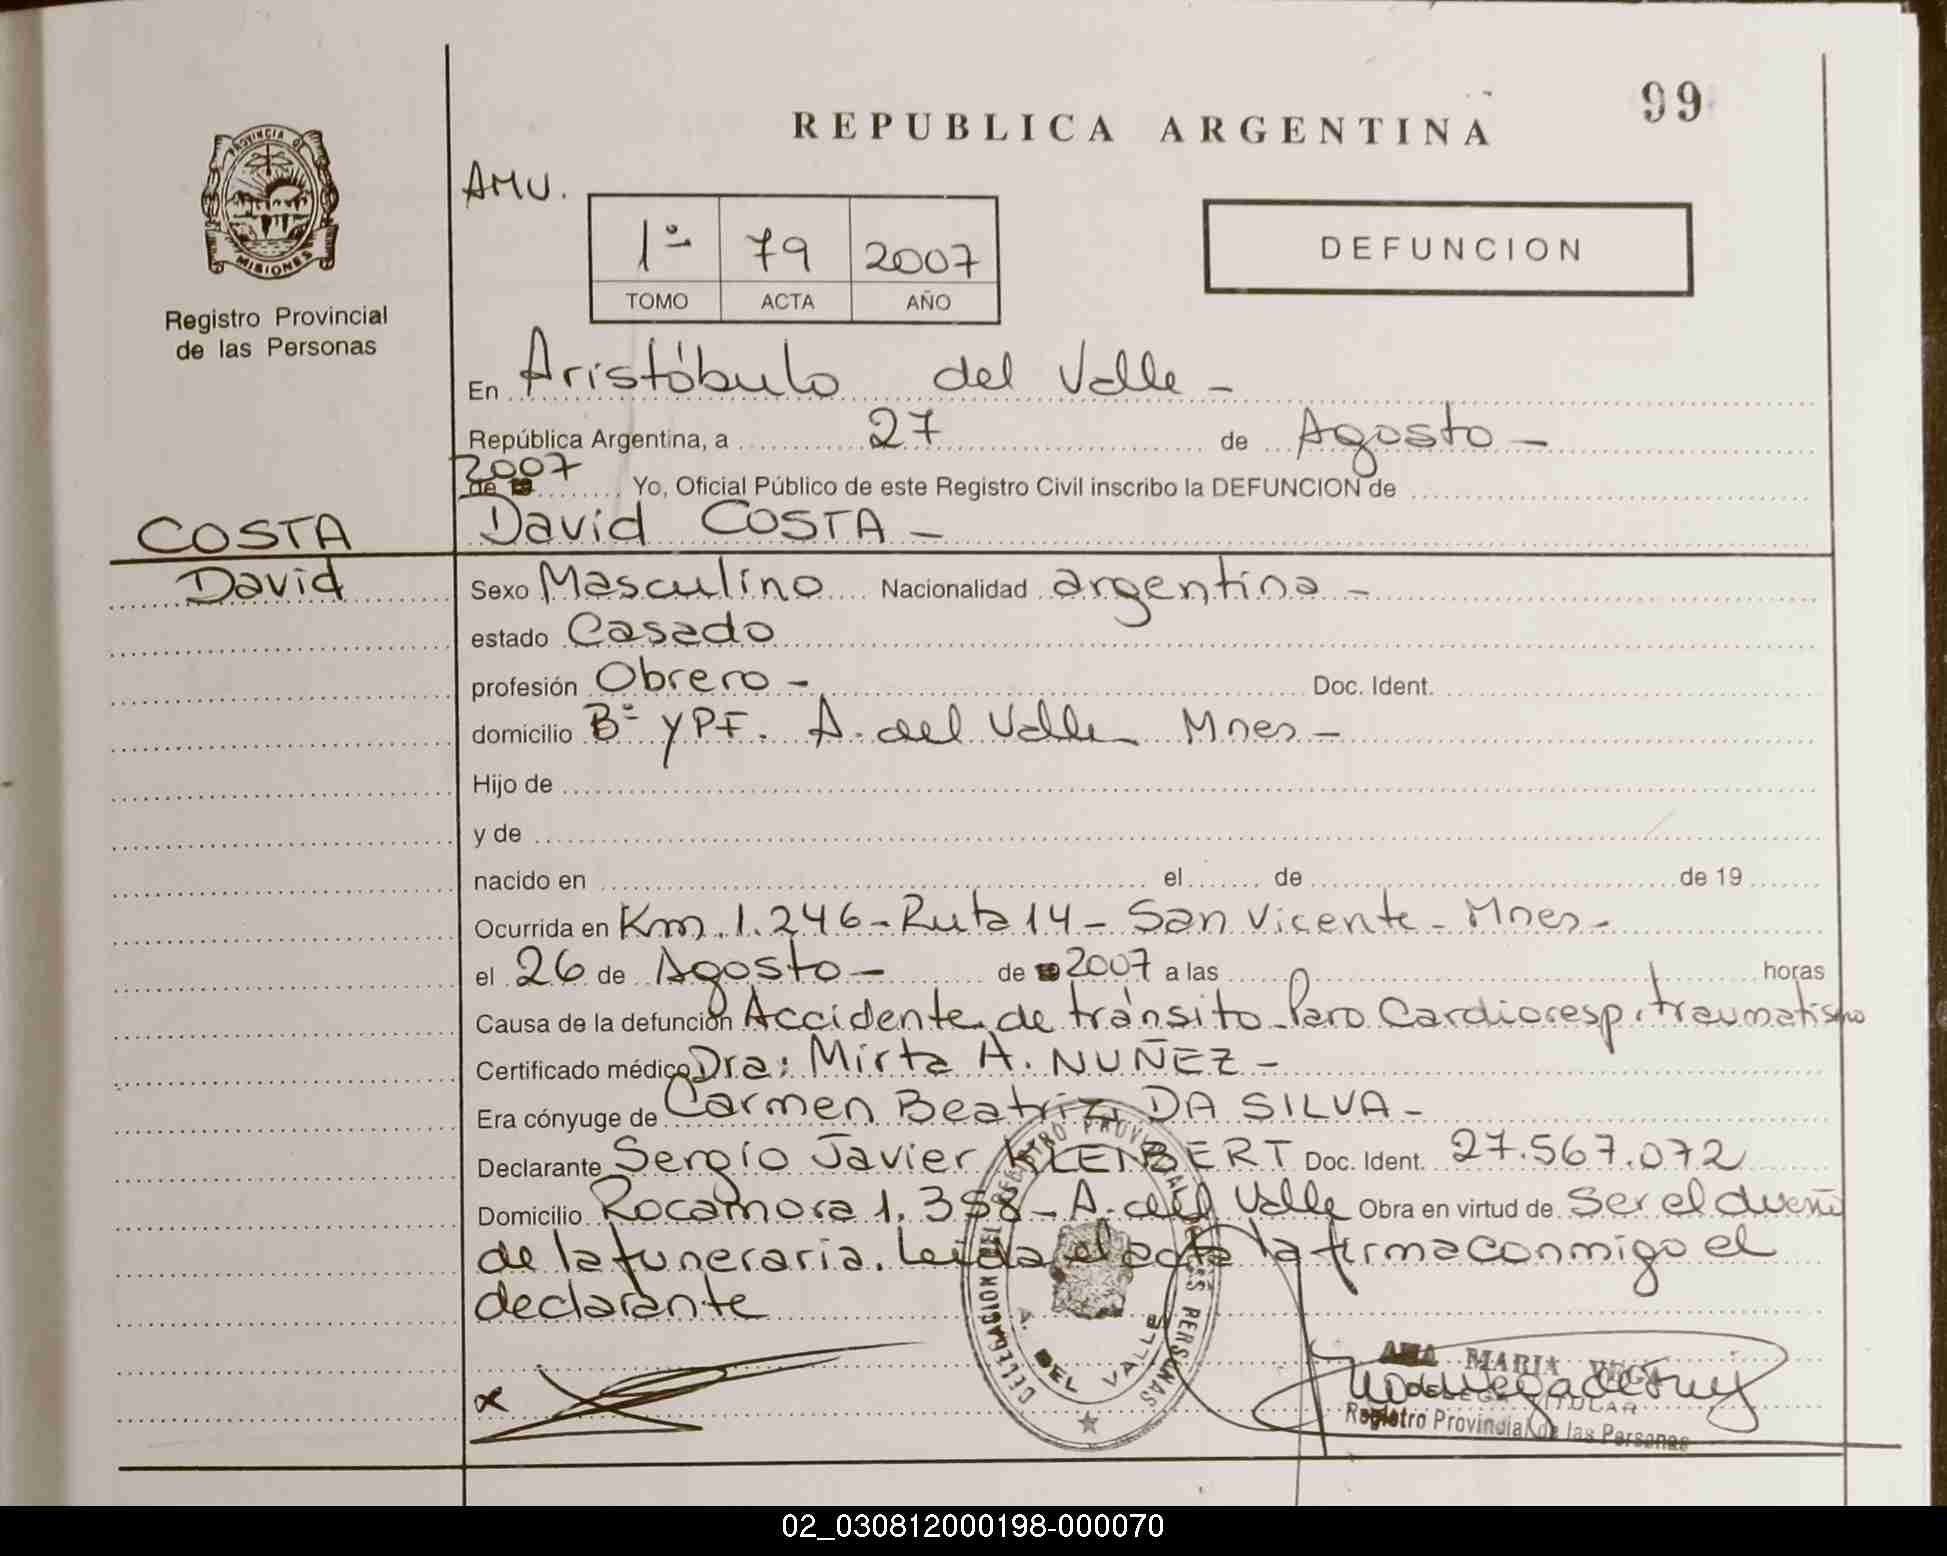 99
REPUBLICA ARGENTINA
PROVINCIA DE
MISIONES
Registro Provincial
de las Personas
AMV.
1º 79 2007
TOMO ACTA AÑO
DEFUNCION
En Aristóbulo del Valle -
República Argentina, a 27 de Agosto -
2007
de 19 Yo, Oficial Público de este Registro Civil inscribo la DEFUNCION de
COSTA David COSTA -
David
Sexo Masculino Nacionalidad argentina -
estado Casado
profesión Obrero - Doc. Ident.
domicilio Bº YPF. A. del Valle Mnes -
Hijo de
y de
nacido en el de de 19
Ocurrida en Km. 1.246 - Ruta 14 - San Vicente - Mnes -
el 26 de Agosto - de 2007 a las horas
Causa de la defunción Accidente de tránsito - Paro Cardioresp. traumatismo
Certificado médico Dra: Mirta A. NUÑEZ -
Era cónyuge de Carmen Beatriz DA SILVA -
Declarante Sergio Javier KLEINBERT Doc. Ident. 27.567.072
Domicilio Rocamora 1.358 - A. del Valle Obra en virtud de Ser el dueño
de la funeraria. Leída el acta la firma conmigo el
declarante
DELEGACION DEL REGISTRO PROVINCIAL DE LAS PERSONAS
A. DEL VALLE
x
ANA MARIA VEGA
DELEGADA TITULAR
Registro Provincial de las Personas
02_030812000198-000070